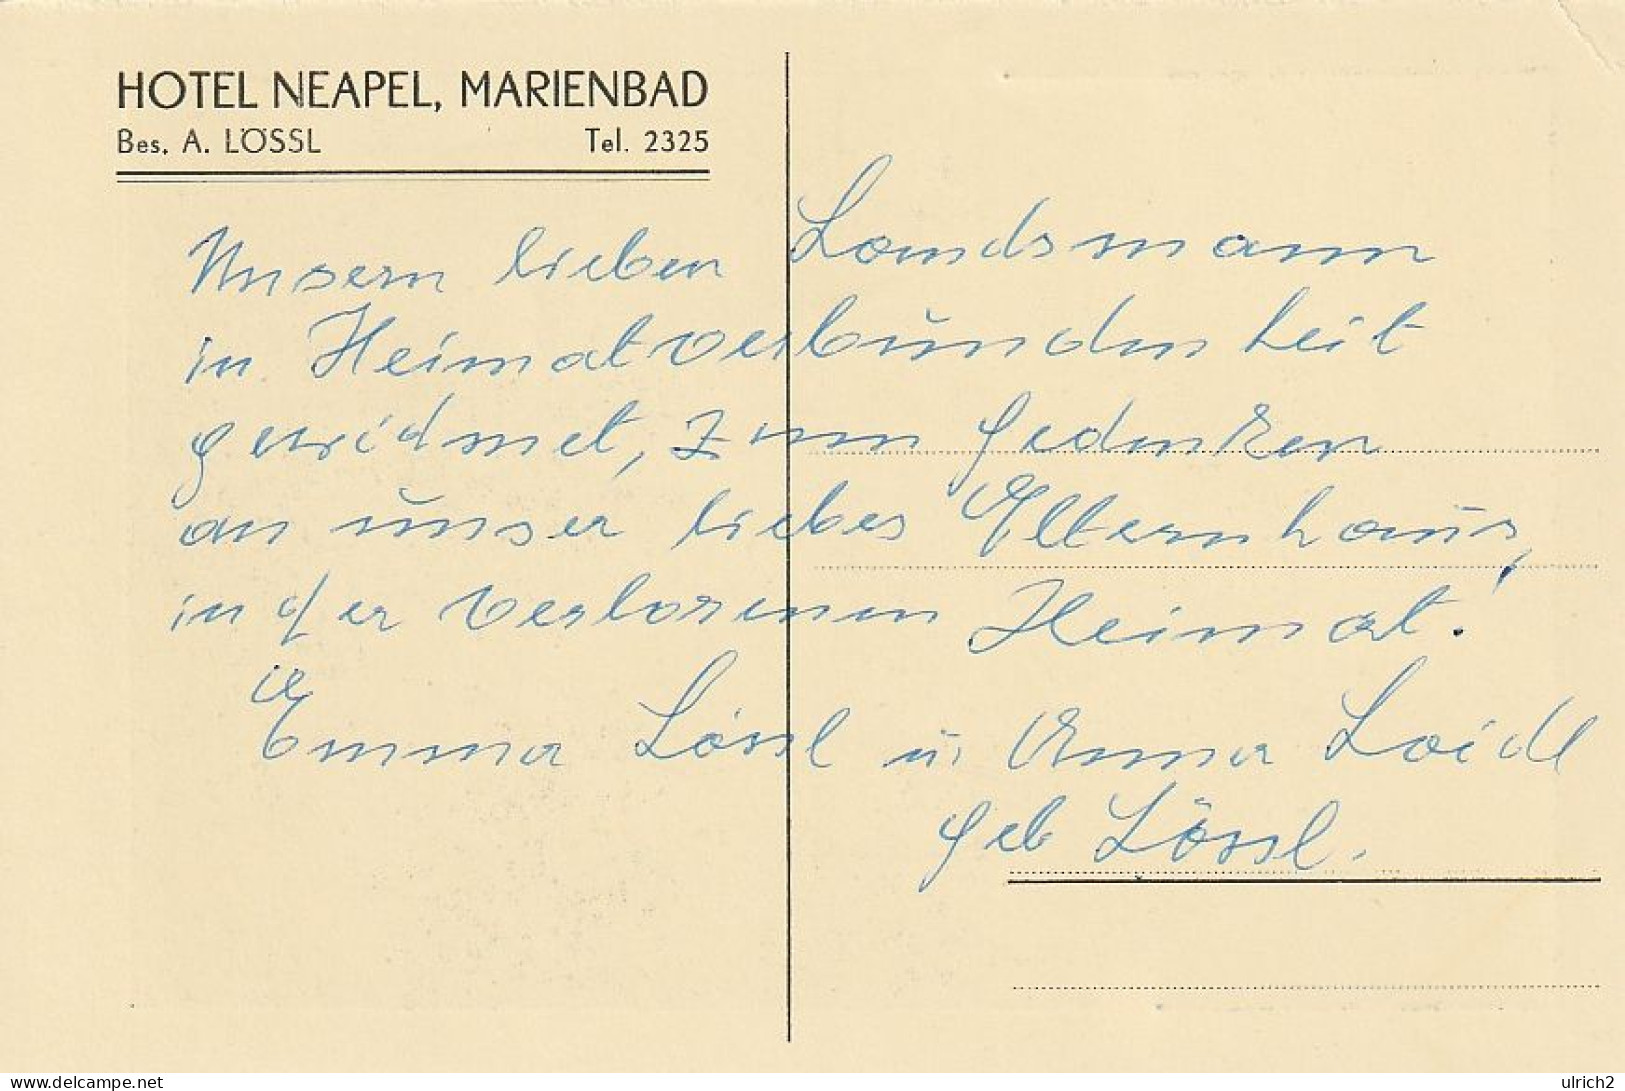 HOTEL NEAPEL, MARIENBAD
Bes. A. LÖSSL Tel. 2325
Unsern lieben Landsmann
in Heimatverbundenheit
gewidmet, zum Gedenken
an unser liebes Elternhaus,
in der verlorenen Heimat!
Emma Lössl u. Anna Loidl
geb Lössl.
www.delcampe.net ulrich2